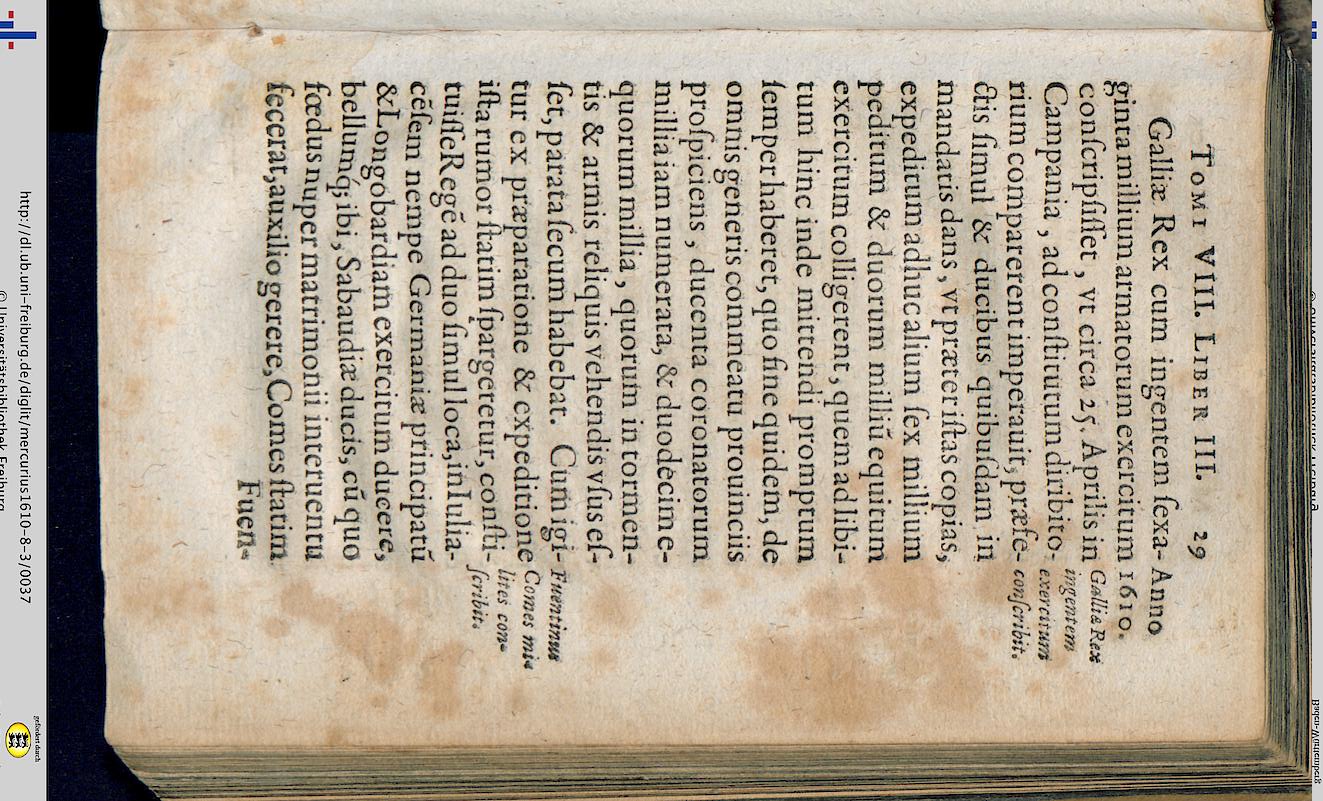 TOMI VIII. LIBER III. 29
Galliæ Rex cum ingentem ſexa-
ginta millium armatorum exercitum
conſcripſiſſet, vt circa 25. Aprilis in
Campania, ad conſtitutum diribito-
rium comparerent imperauit, præfe-
ctis ſimul & ducibus quibuſdam in
mandatis dans, vt præter iſtas copias,
expeditum adhuc alium ſex millium
peditum & duorum milliũ equitum
exercitum colligerent, quem ad libi-
tum hinc inde mittendi promptum
ſemper haberet, quo fine quidem, de
omnis generis commeatu prouinciis
proſpiciens, ducenta coronatorum
millia iam numerata, & duodecim e-
quorum millia, quorum in tormen-
tis & armis reliquis vehendis vſus eſ-
ſet, parata ſecum habebat. Cum igi-
tur ex præparatione & expeditione
iſta rumor ſtatim ſpargeretur, conſti-
tuiſſe Regẽ ad duo ſimul loca, in Iulia-
cẽſem nempe Germaniæ principatũ
& Longobardiam exercitum ducere,
bellumq́; ibi, Sabaudiæ ducis, cũ quo
fœdus nuper matrimonii interuentu
fecerat, auxilio gerere, Comes ſtatim
Fuen-
Anno
1610.
Galliæ Rex
ingentem
exercitum
conſcribit.
Fuentinus
Comes mi-
lites con-
ſcribit.
http://dl.ub.uni-freiburg.de/diglit/mercurius1610-8-3/0037
© Universitätsbibliothek Freiburg
gefördert durch